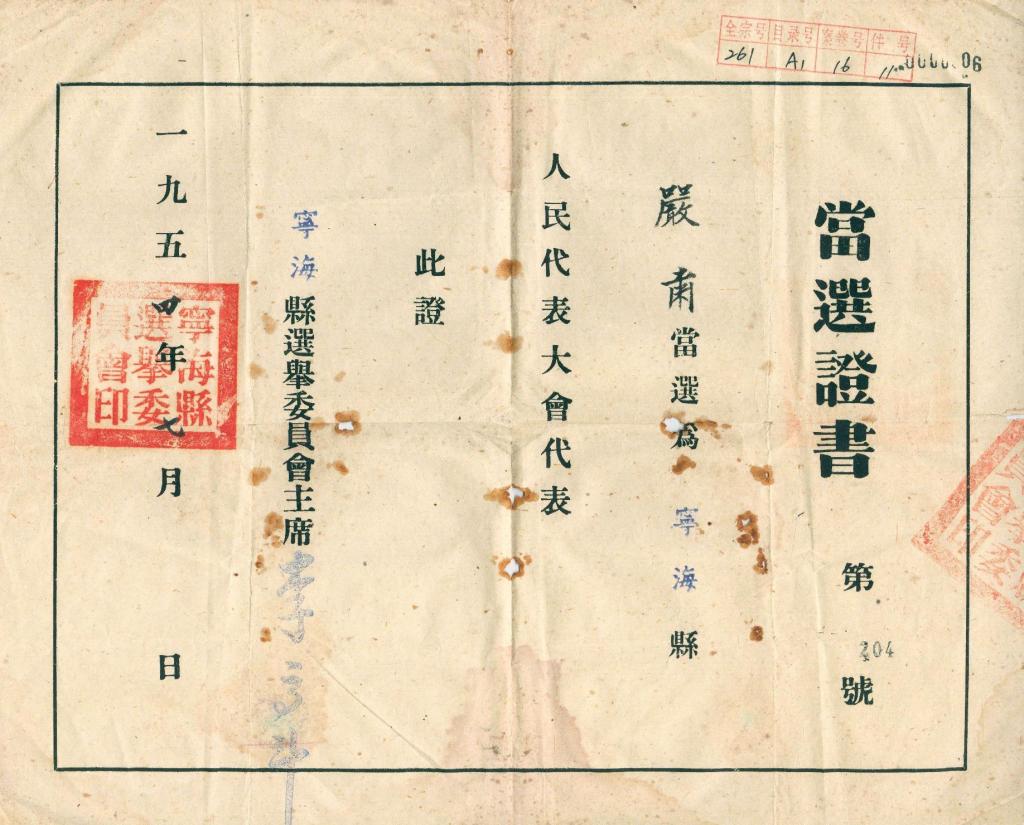 全宗号 目录号 案卷号 件号
261 A1 16 11
06
當選證書
第204號
嚴甫當選為寧海縣
人民代表大會代表
此證
寧海縣選舉委員會主席
一九五四年七月 日
寧海縣
選舉委
員會印